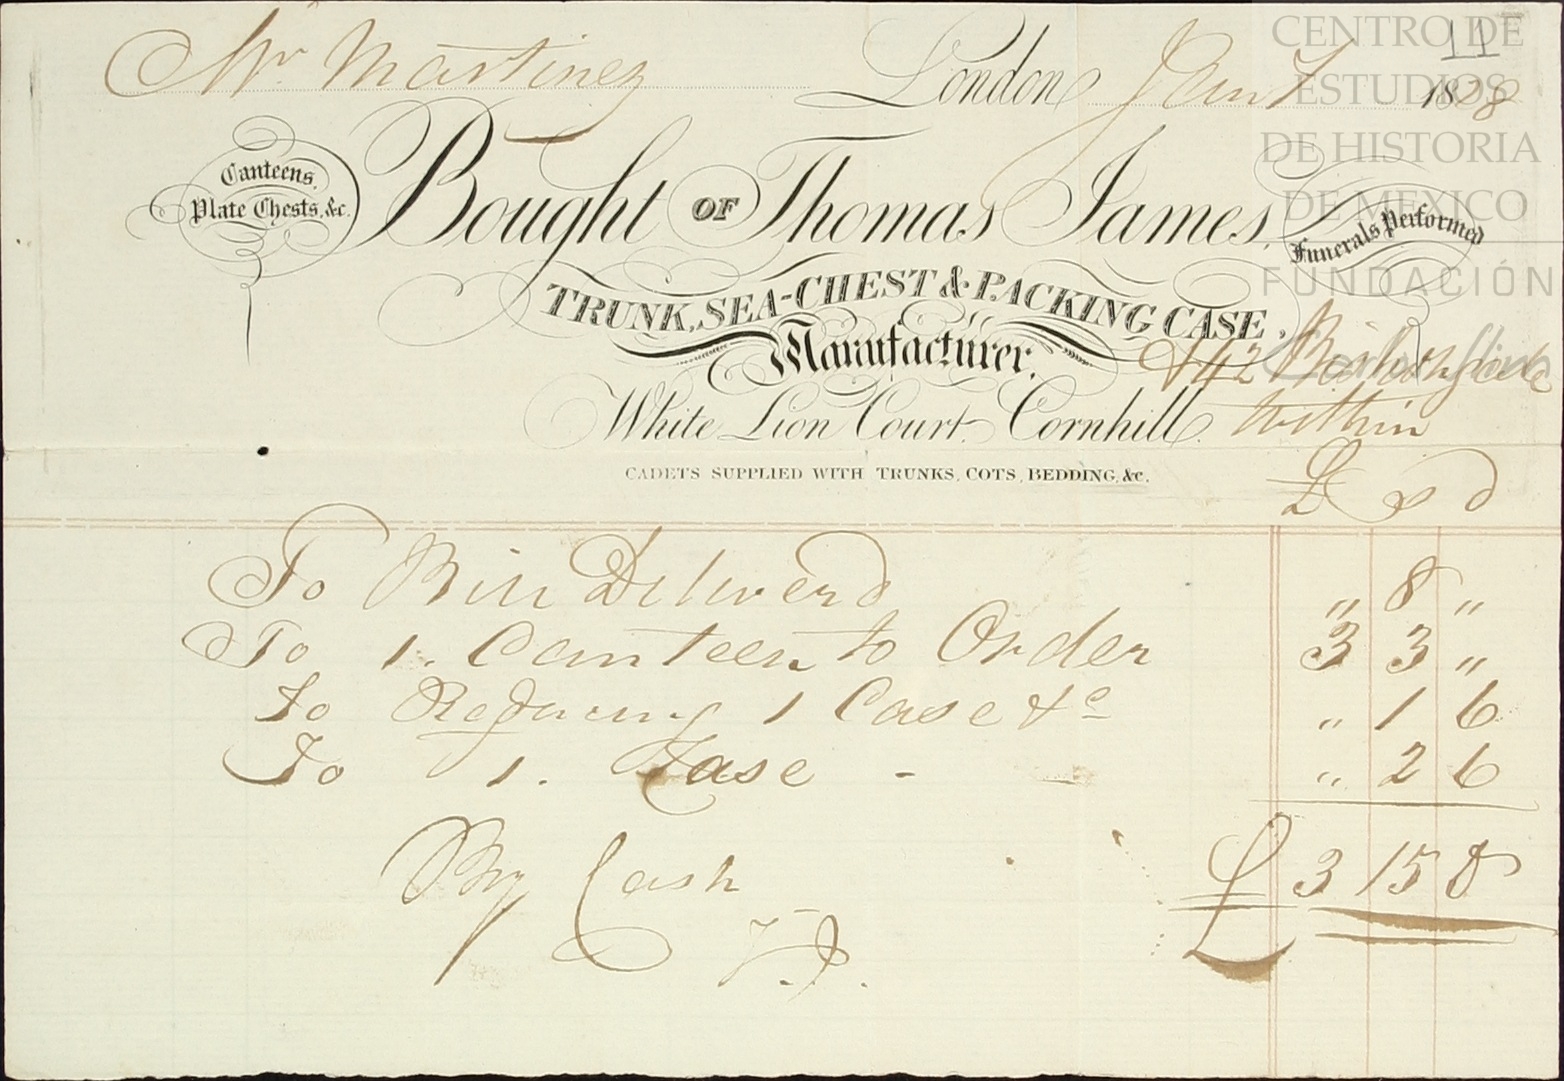 11
Mr Martinez London Jany 1828
Canteens,
Plate Chests, &c.
Bought OF Thomas James,
Funerals Performed
TRUNK, SEA-CHEST & PACKING CASE,
Manufacturer,
& 42 Bishopsgate
White Lion Court, Cornhill. Within
CADETS SUPPLIED WITH TRUNKS, COTS, BEDDING, &c.
£ s d
To Bill Deliverd " 8 "
To 1. Canteen to Order 3 3 "
To 1 Case &c " 1 6
To 1. Case - - " 2 6
£ 3 15 0
By Cash
T.J.
CENTRO DE
ESTUDIOS
DE HISTORIA
DE MEXICO
FUNDACIÓN
Carlos Slim